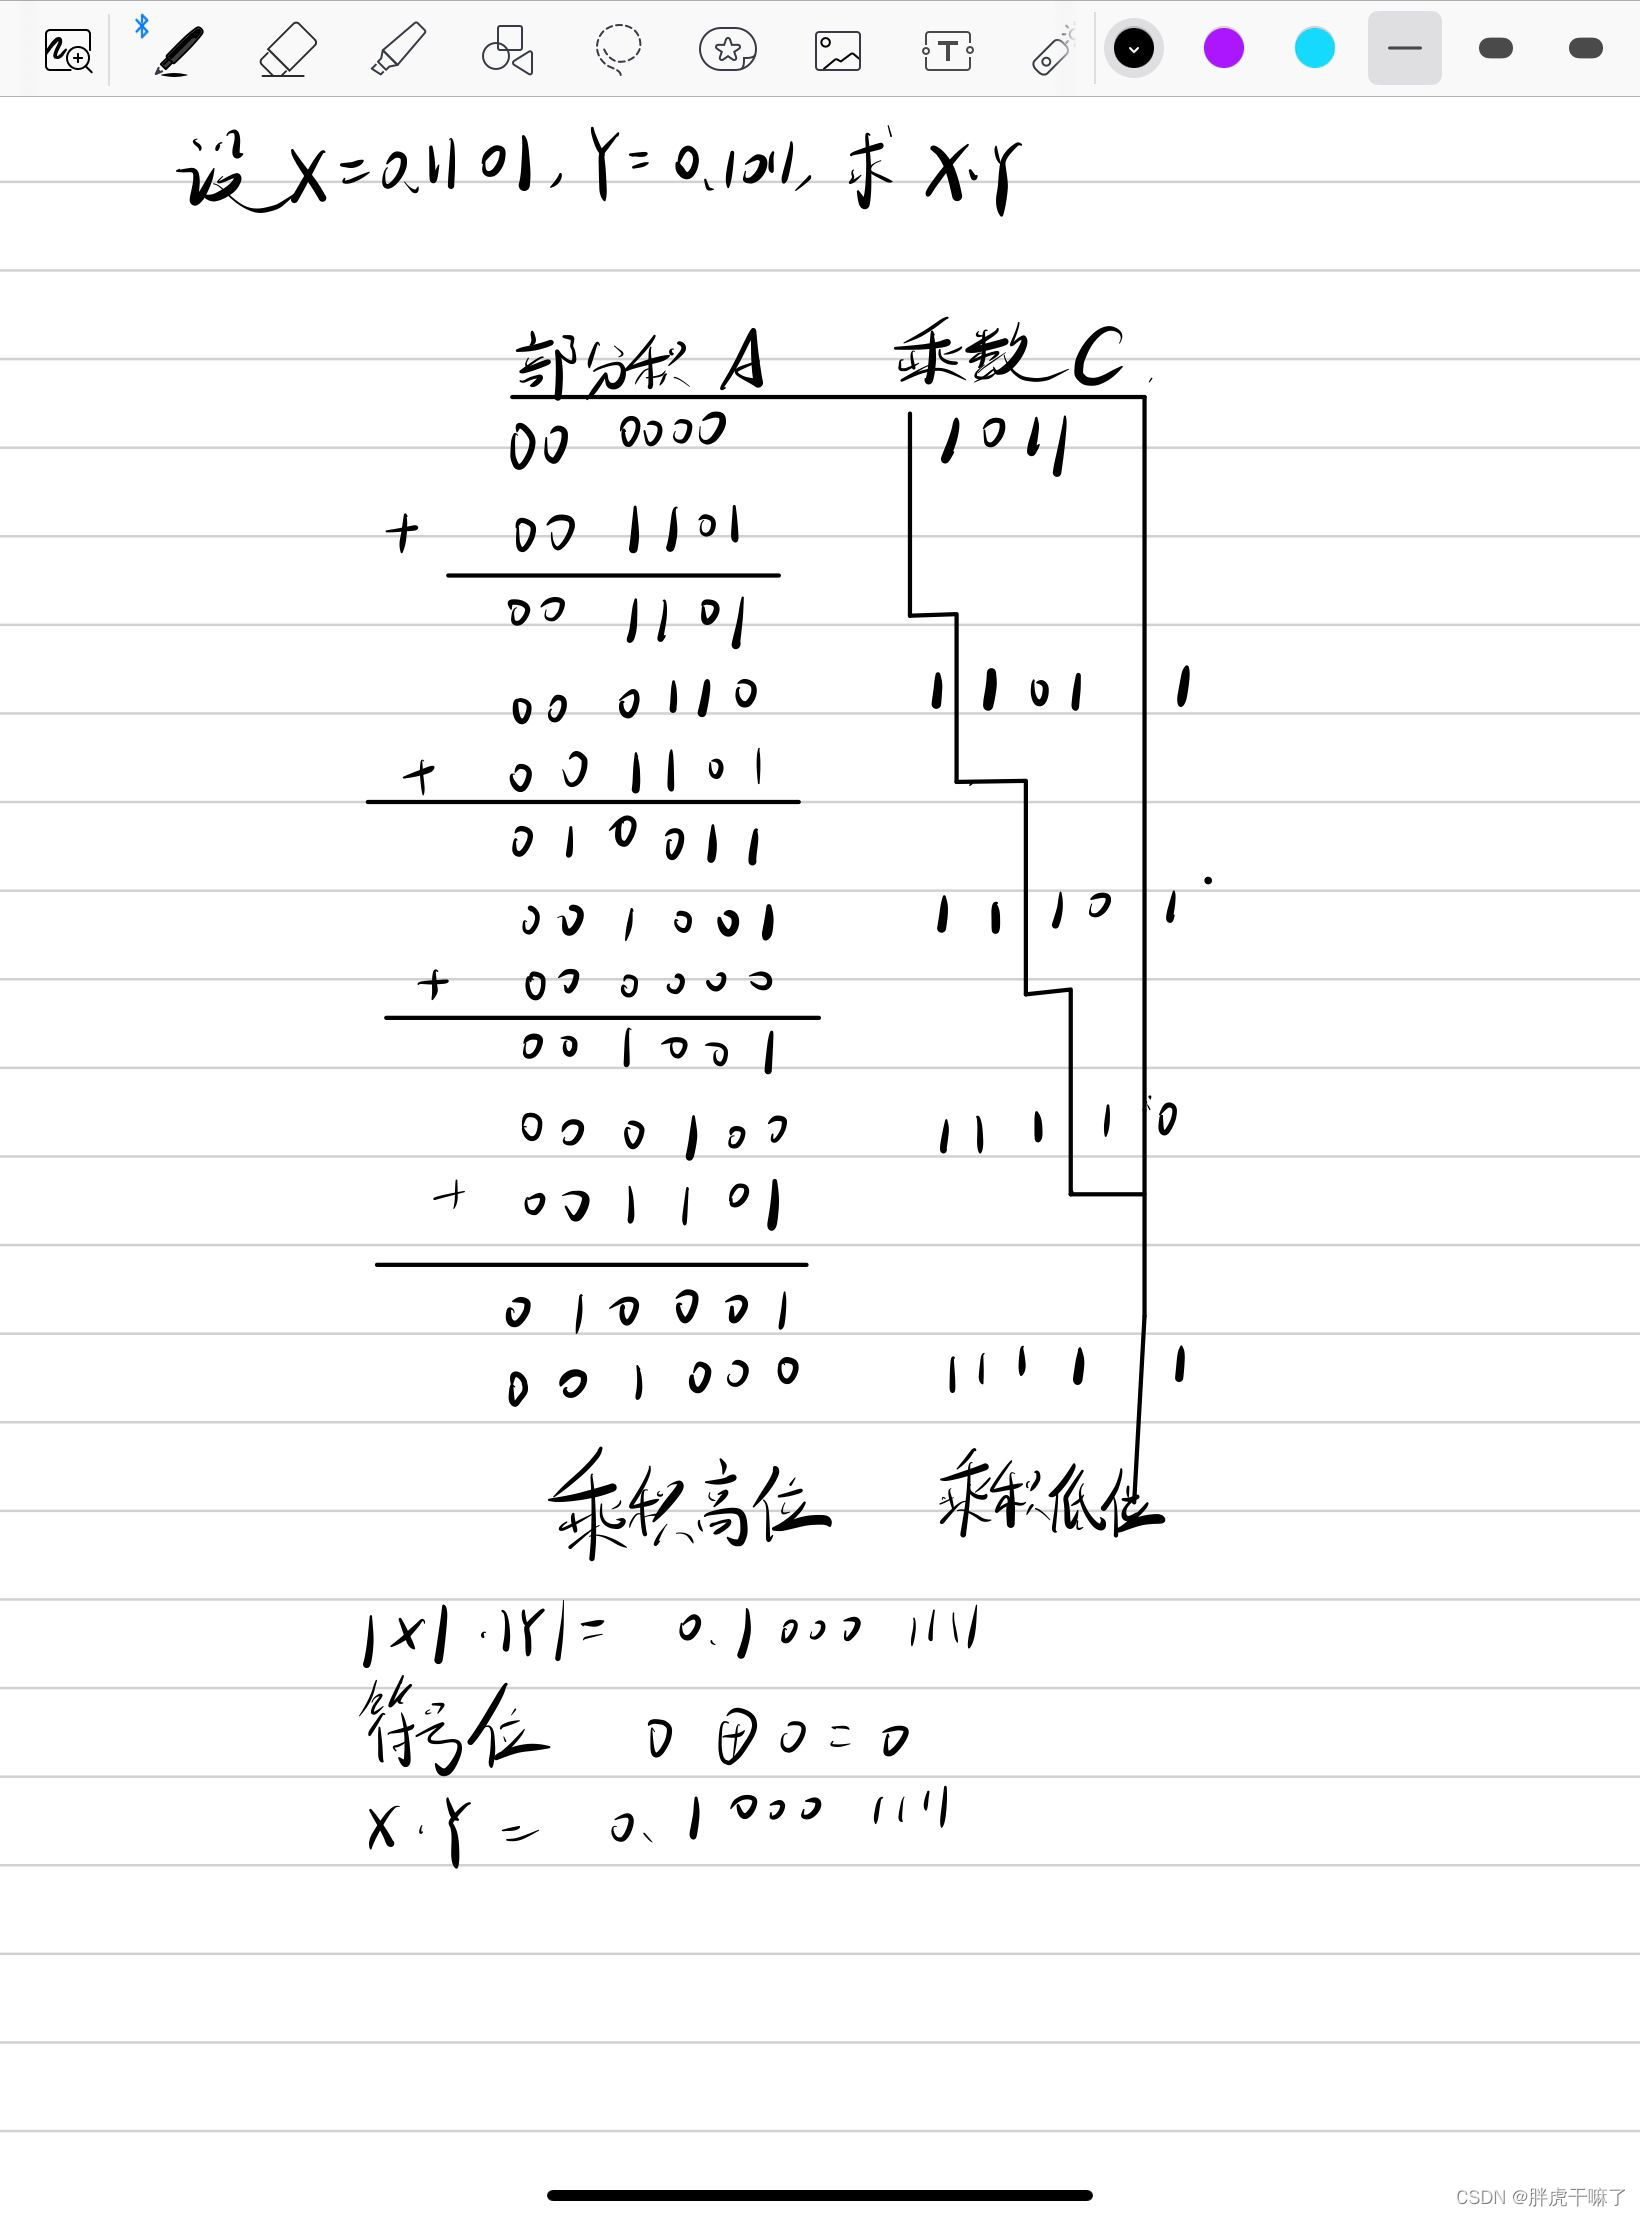 设X=0.1101,Y=0.1011,求X.Y
部分积A 乘数C
00 0000 1011
+ 00 1101
00 1101
00 0110 1 101 1
+ 00 1101
01 0011
00 1001 11 10 1
+ 00 0000
00 1001
00 0100 111 1 0
+ 00 1101
01 0001
00 1000 1111 1
乘积高位 乘积低位
|X|·|Y|= 0.1000 1111
符号位 0⊕0=0
X·Y= 0.1000 1111
CSDN @胖虎干嘛了